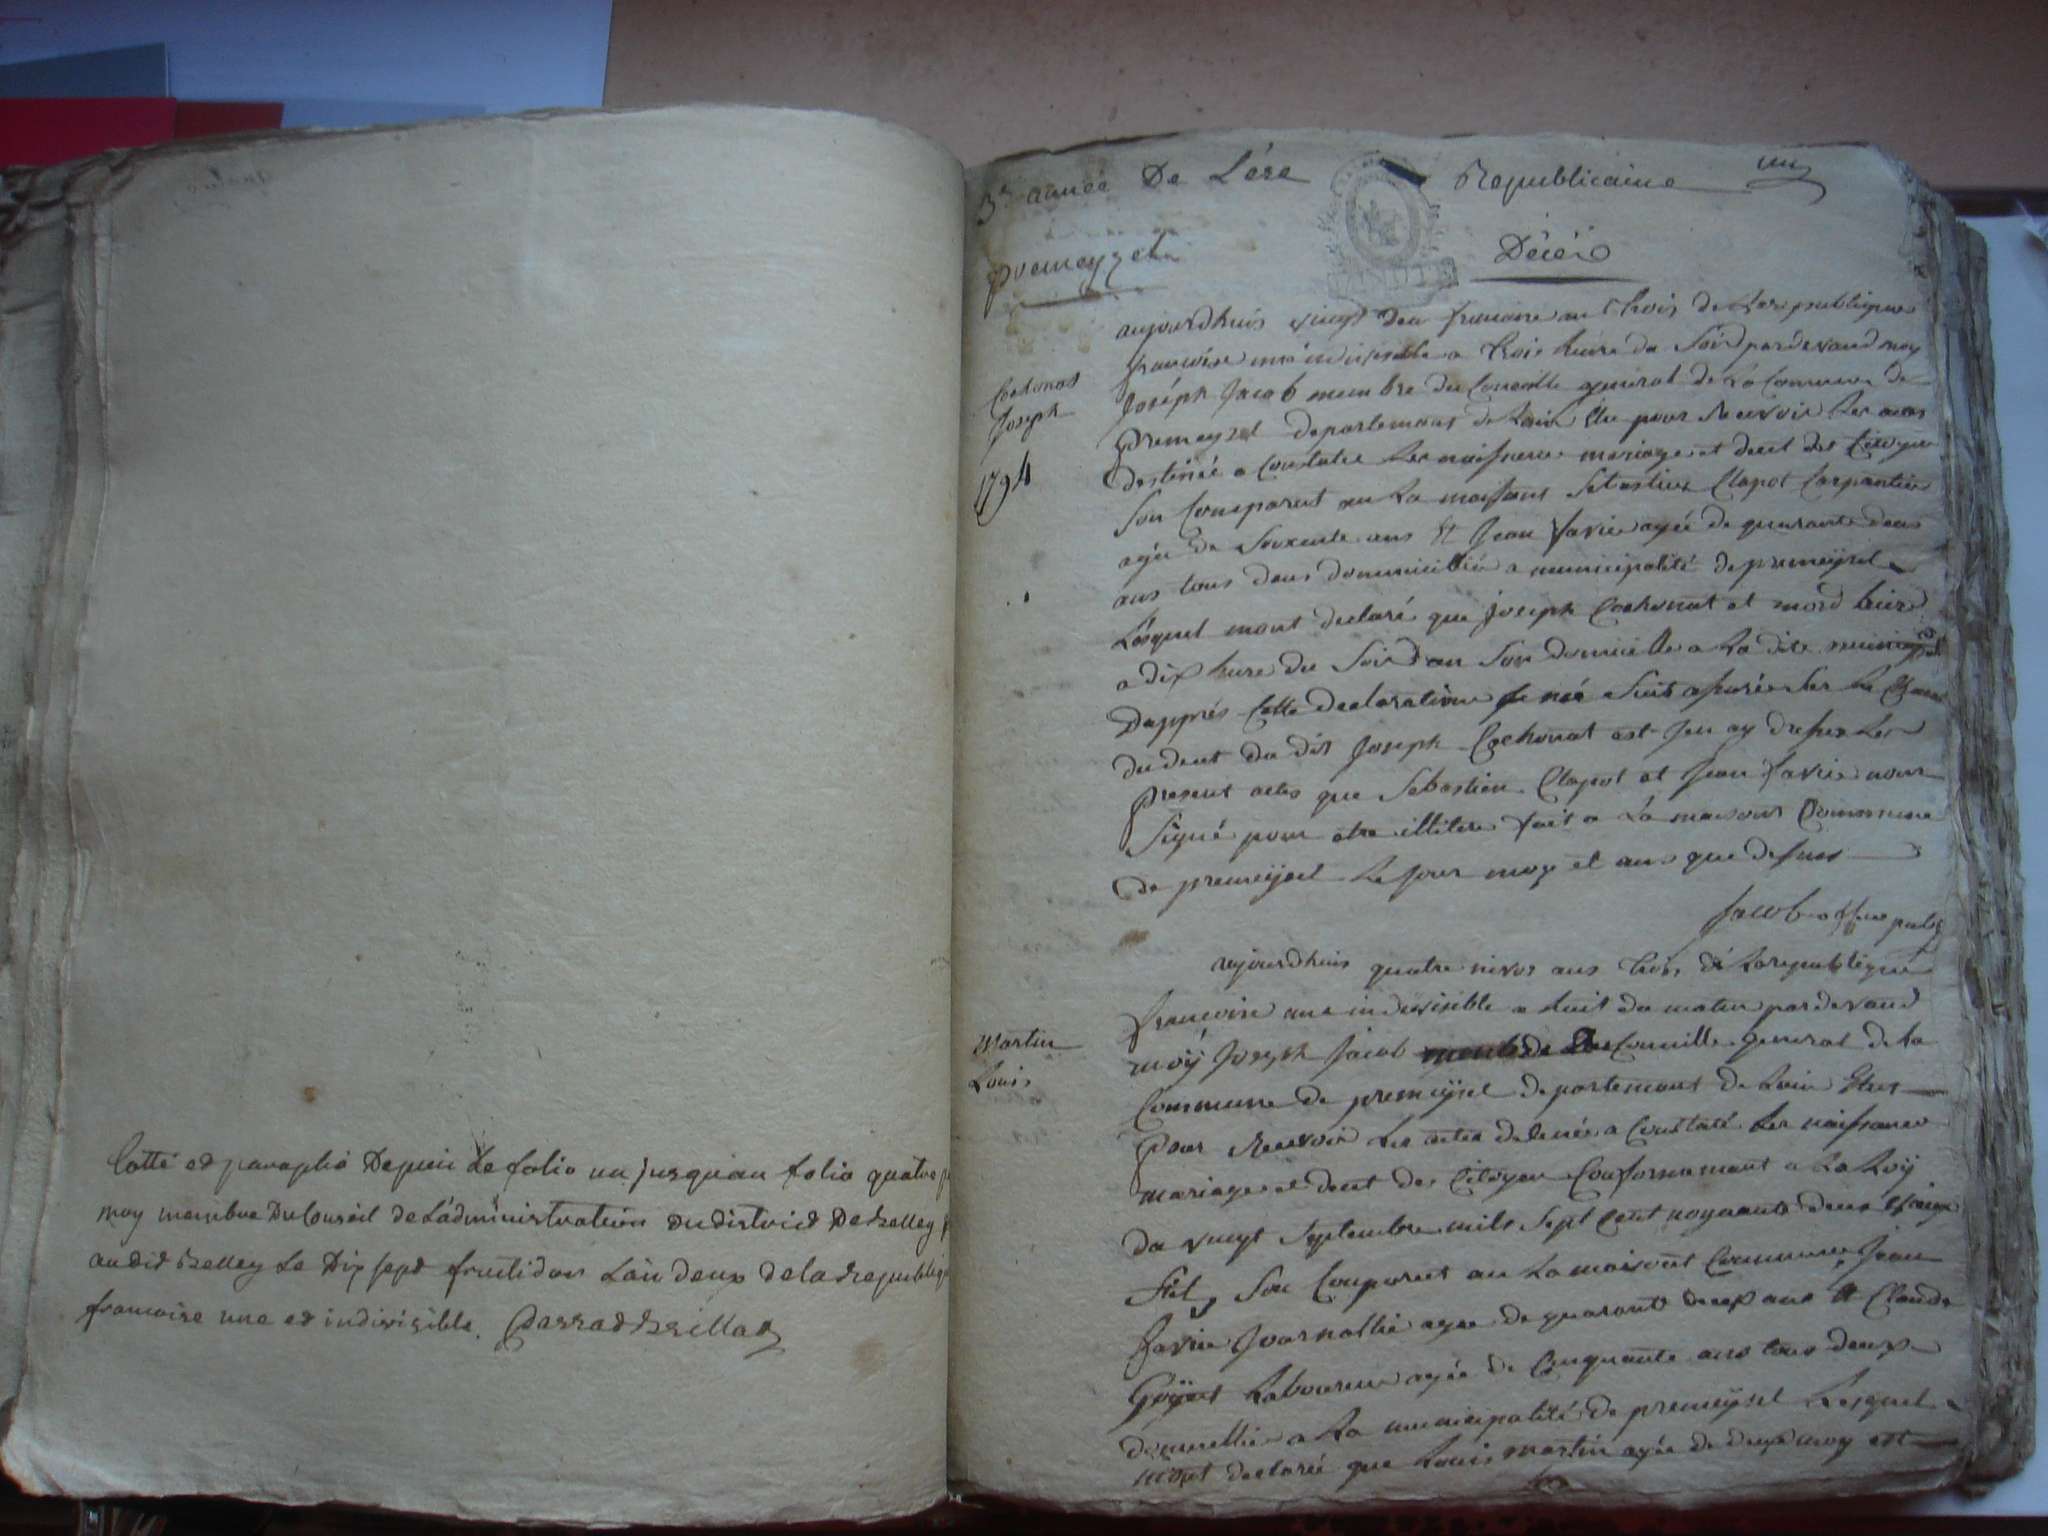 Cotté et paraphé Depuis Le folio un jusquau folio quatre p
moy membre Du Conseil de Ladministration du district De Belley p
audit Belley Le Dix sept fructidor Lan deux de la Republiqu
francoise une et indivisible.
3e année De L'ére Republicaine un
premeyzel
Décés
Cochonat
Joseph
1794
aujourdhuis vingt deu frimaire an throis de La republique
francoise une indivisible a throis heure du Soird pardevand moy
Joséph Jacob membre du Conseille general de La Commune de
premeyzel departemant de Lain Elu pour Recevoir Les actes
destinée a Constater Les naissence mariage et decet des Citoyen
Son Comparut au La maissont Sebastien Clapot Carpantier
agée de Soixente ans Et Jean favie agée de quarante deus
ans tous deus domicillié a municipalité de premeyzel
Lésquel mont declaré que joseph Cochonat et mord hier
a dix hure du Soird au Son domicille a La dite municipal
Dapprés Cette declaration je me suis assurée Sur Le Cham
du decet du dit Joseph Cochonat est jen ay dresser Le
present actes que Sebastien Clapot et Jean favie nont
Signé pour etre illitere fait a La maisont Commune
de premeyzel Le jour moy et ans que desus
Jacob off public
Martin
Louis
aujourdhuis quatre nivos ans throis de La republique
francoise une indivisible a huit du matin pardevand
moÿ Joseph Jacob membre du Conseille general de La
Commune de premeyzel departemant de Lain Elus
pour Recevoir Les actes destinée a Constaté Les naissance
mariage et decet des Citoyen Conformemant a La Loÿ
du vingt Septembre mils Sept Cent noynante deus
Son Comparut au La maisont Commune Jean
favie Journallié agée de quarante deux ans Et Claude
Goÿet Laboureur agée de Cinquante ans tous deux
domicillié a La municipalité de premeyzel Lesquel
mont declarée que Louis martin agée de deux moy est